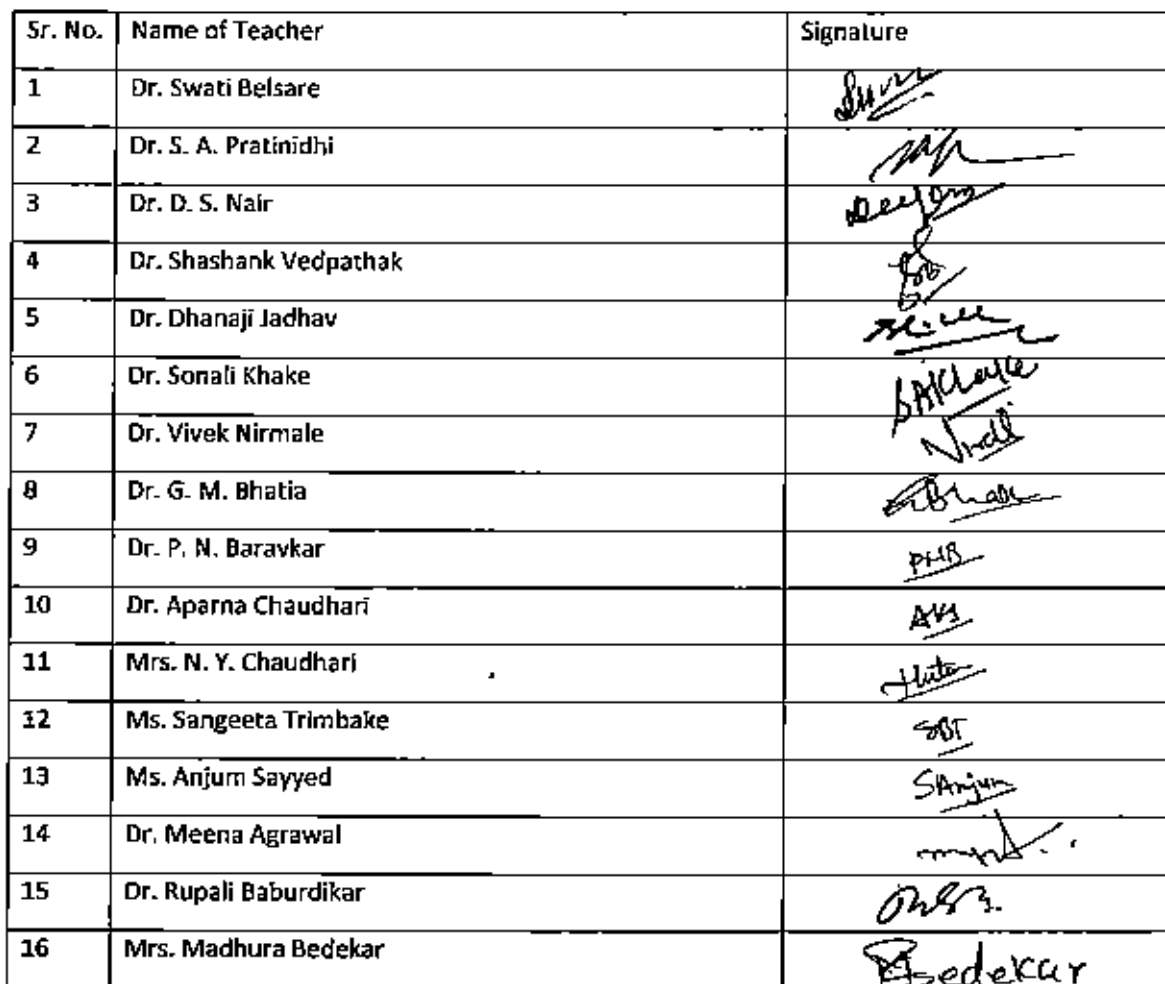 Sr. No. Name of Teacher Signature
1 Dr. Swati Belsare
2 Dr. S. A. Pratinidhi
3 Dr. D. S. Nair
4 Dr. Shashank Vedpathak
5 Dr. Dhanaji Jadhav
6 Dr. Sonali Khake SAKhake
7 Dr. Vivek Nirmale
8 Dr. G. M. Bhatia
9 Dr. P. N. Baravkar PNB
10 Dr. Aparna Chaudhari
11 Mrs. N. Y. Chaudhari
12 Ms. Sangeeta Trimbake SBT
13 Ms. Anjum Sayyed SAnjum
14 Dr. Meena Agrawal
15 Dr. Rupali Baburdikar
16 Mrs. Madhura Bedekar Bedekar